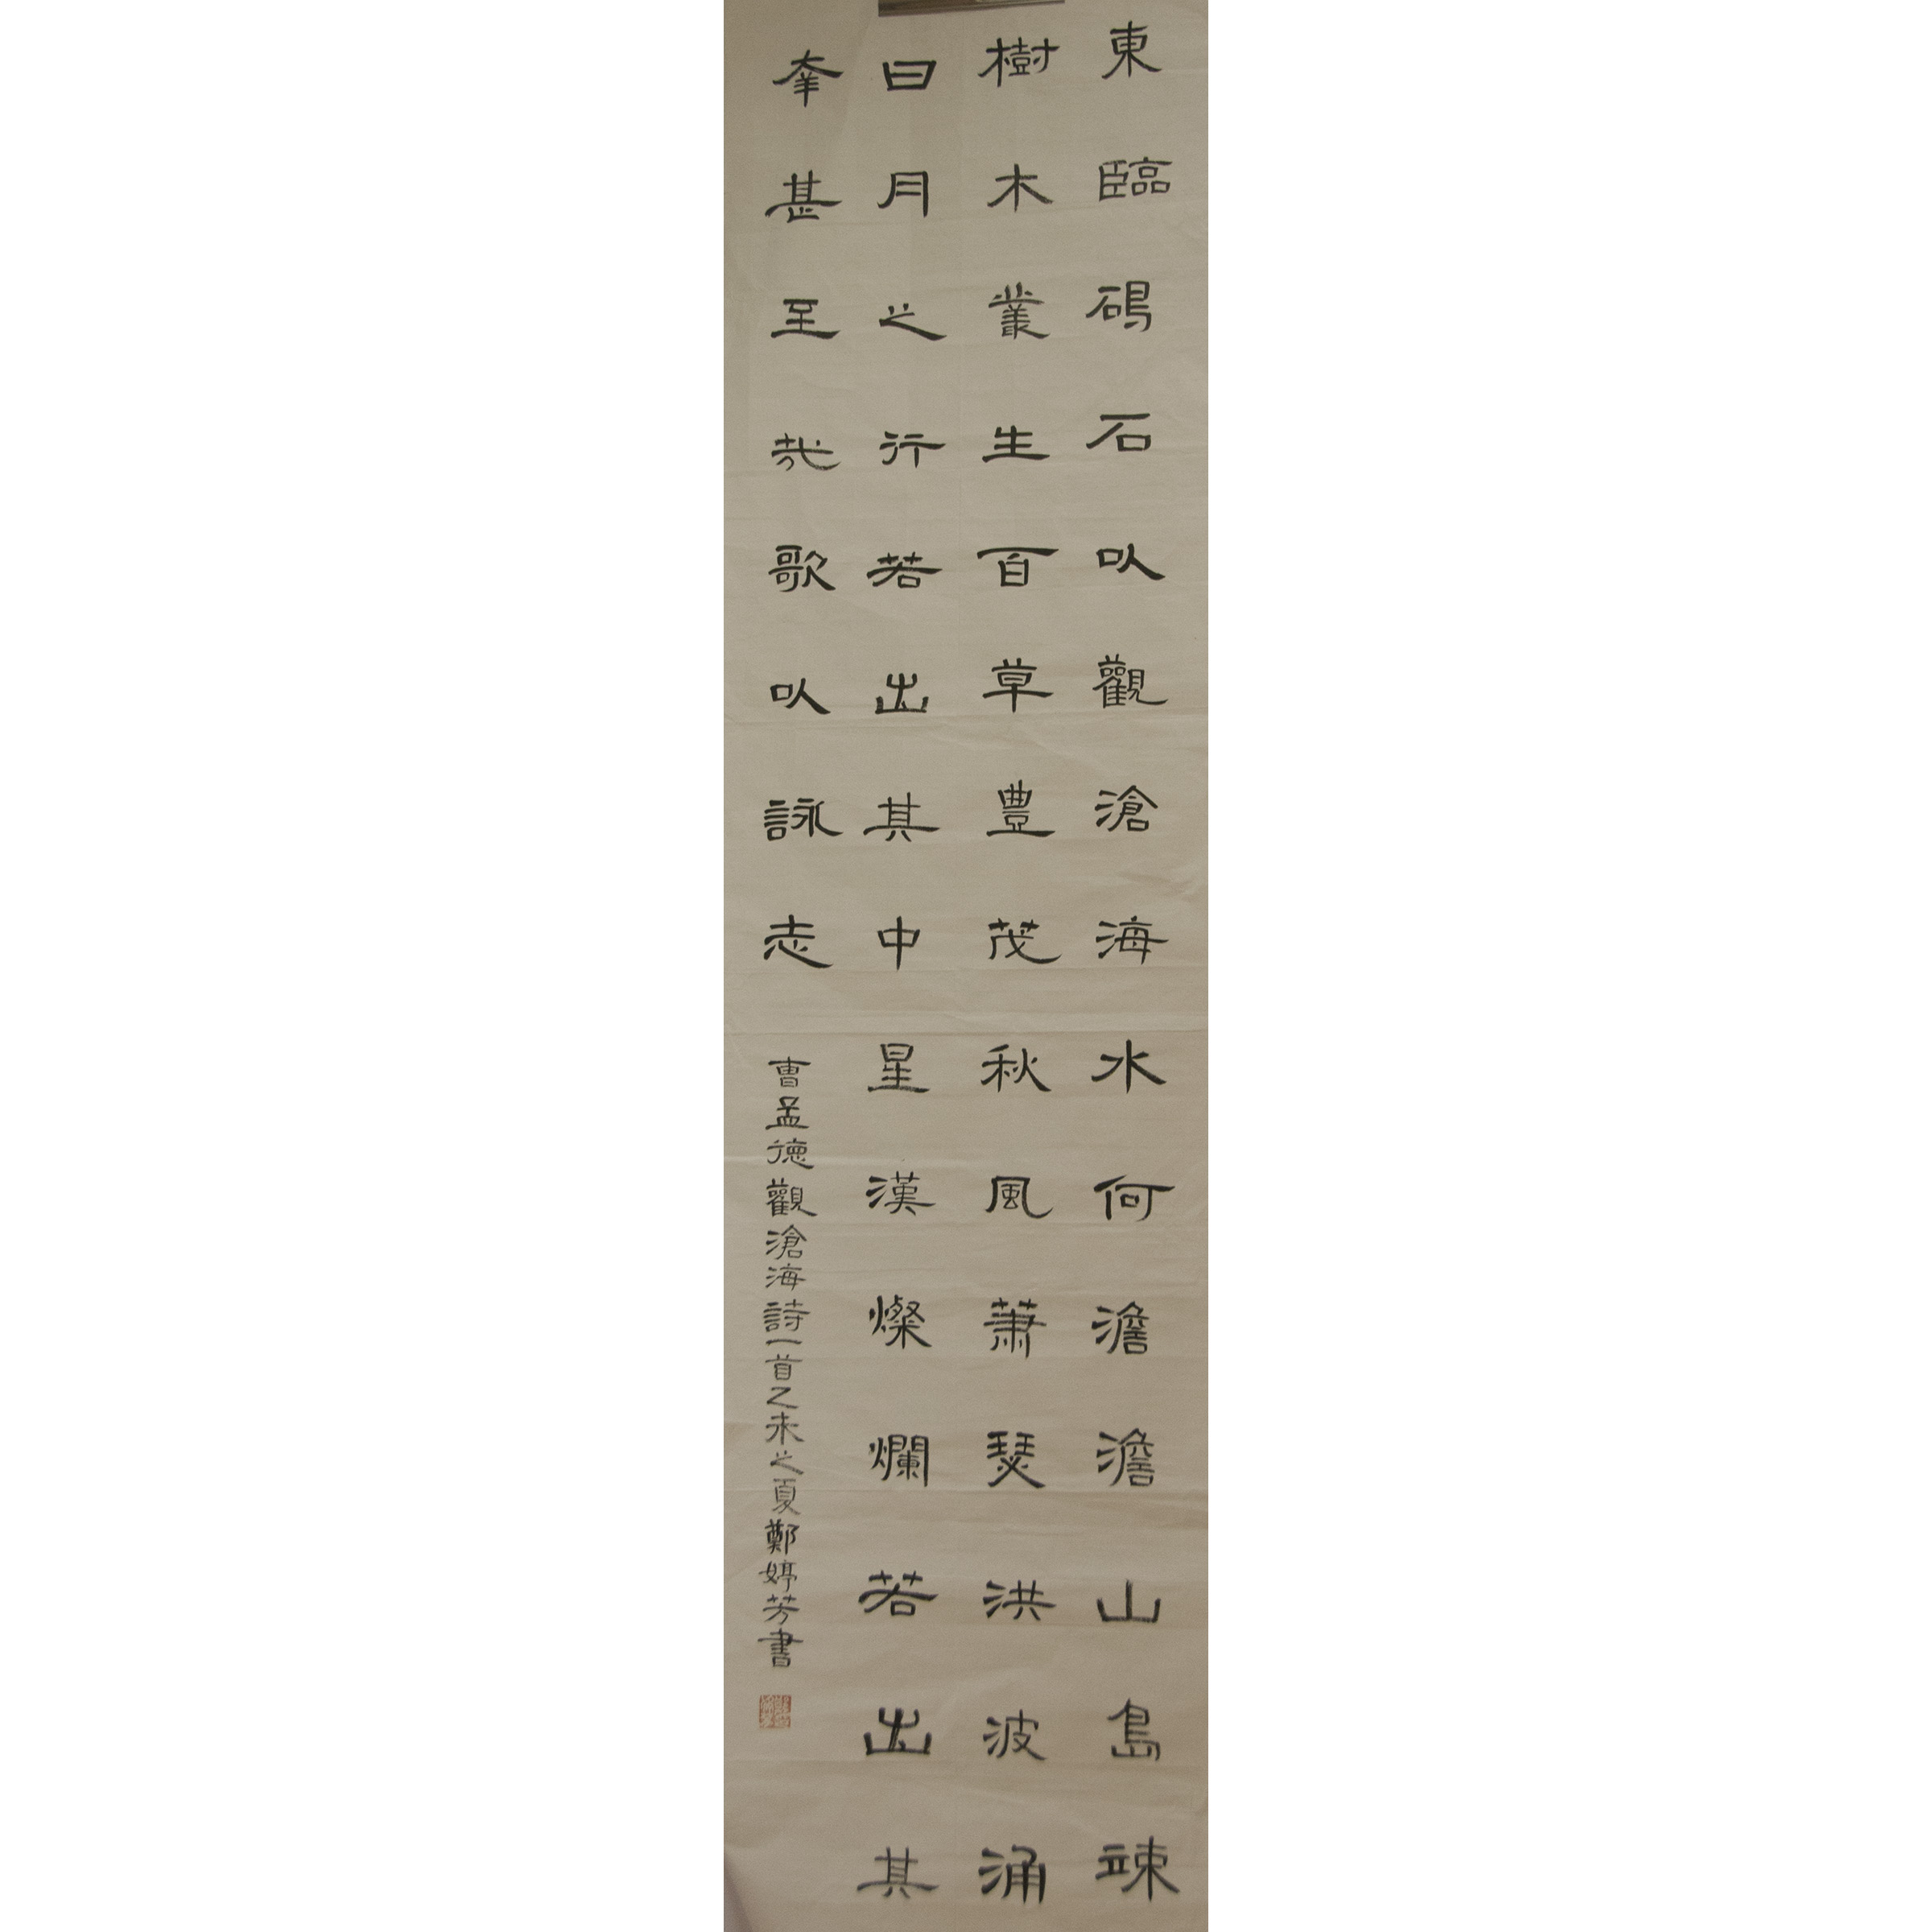 東臨碣石以觀滄海水何澹澹山島竦
樹木叢生百草豊茂秋風蕭瑟洪波涌
日月之行若出其中星漢燦爛若出其
幸甚至哉歌以詠志
曹孟德觀滄海詩一首乙未之夏鄭婷芳書